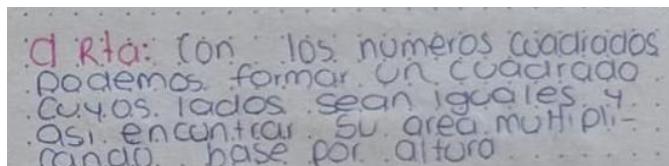 d Rta: Con los números cuadrados
podemos formar un cuadrado
cuyos lados sean iguales y
asi encontrar su area multipli-
cando base por altura